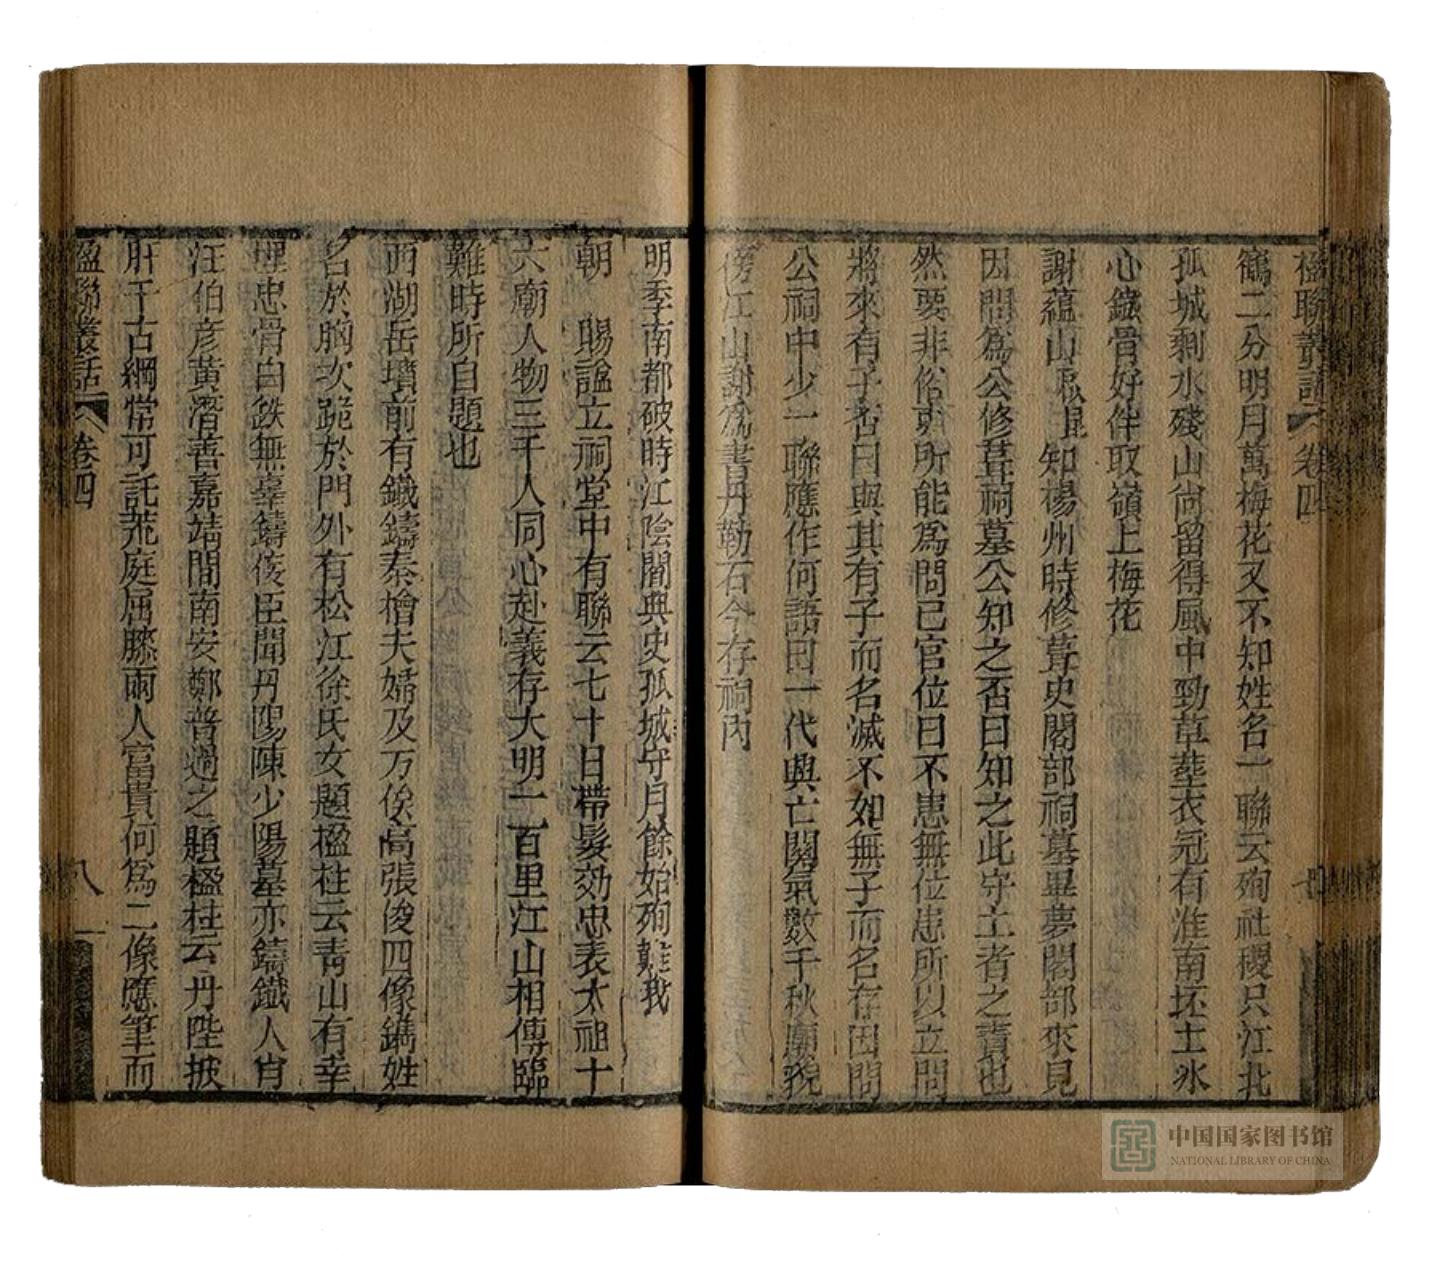 楹聯叢話 卷四 七
鶴二分明月萬梅花又不知姓名一聯云殉社稷只江北
孤城剩水殘山尚留得風中勁草葬衣冠有淮南坏土氷
心鐵骨好伴取嶺上梅花
謝蘊山啟昆知楊州時修葺史閣部祠墓畢夢閣部來見
因問為公修葺祠墓公知之否曰知之此守土者之責也
然要非俗吏所能為問已官位曰不患無位患所以立問
將來有子否曰與其有子而名滅不如無子而名存因問
公祠中少一聯應作何語曰一代興亡關氣數千秋廟貌
傍江山謝為書丹勒石今存祠內
明季南都破時江陰閻典史孤城守月餘始殉難我
朝 賜謚立祠堂中有聯云七十日帶髮効忠表太祖十
六廟人物三千人同心赴義存大明一百里江山相傳臨
難時所自題也
西湖岳墳前有鐵鑄秦檜夫婦及万俟卨張俊四像鐫姓
名於胸次跪於門外有松江徐氏女題楹柱云靑山有幸
埋忠骨白鉄無辜鑄佞臣聞丹陽陳少陽墓亦鑄鐵人肖
汪伯彥黃潛善嘉靖間南安鄭普過之題楹柱云丹陛披
肝千古綱常可託荒庭屈膝兩人富貴何為二像應筆而
楹聯叢話 卷四 八
中国国家图书馆
NATIONAL LIBRARY OF CHINA